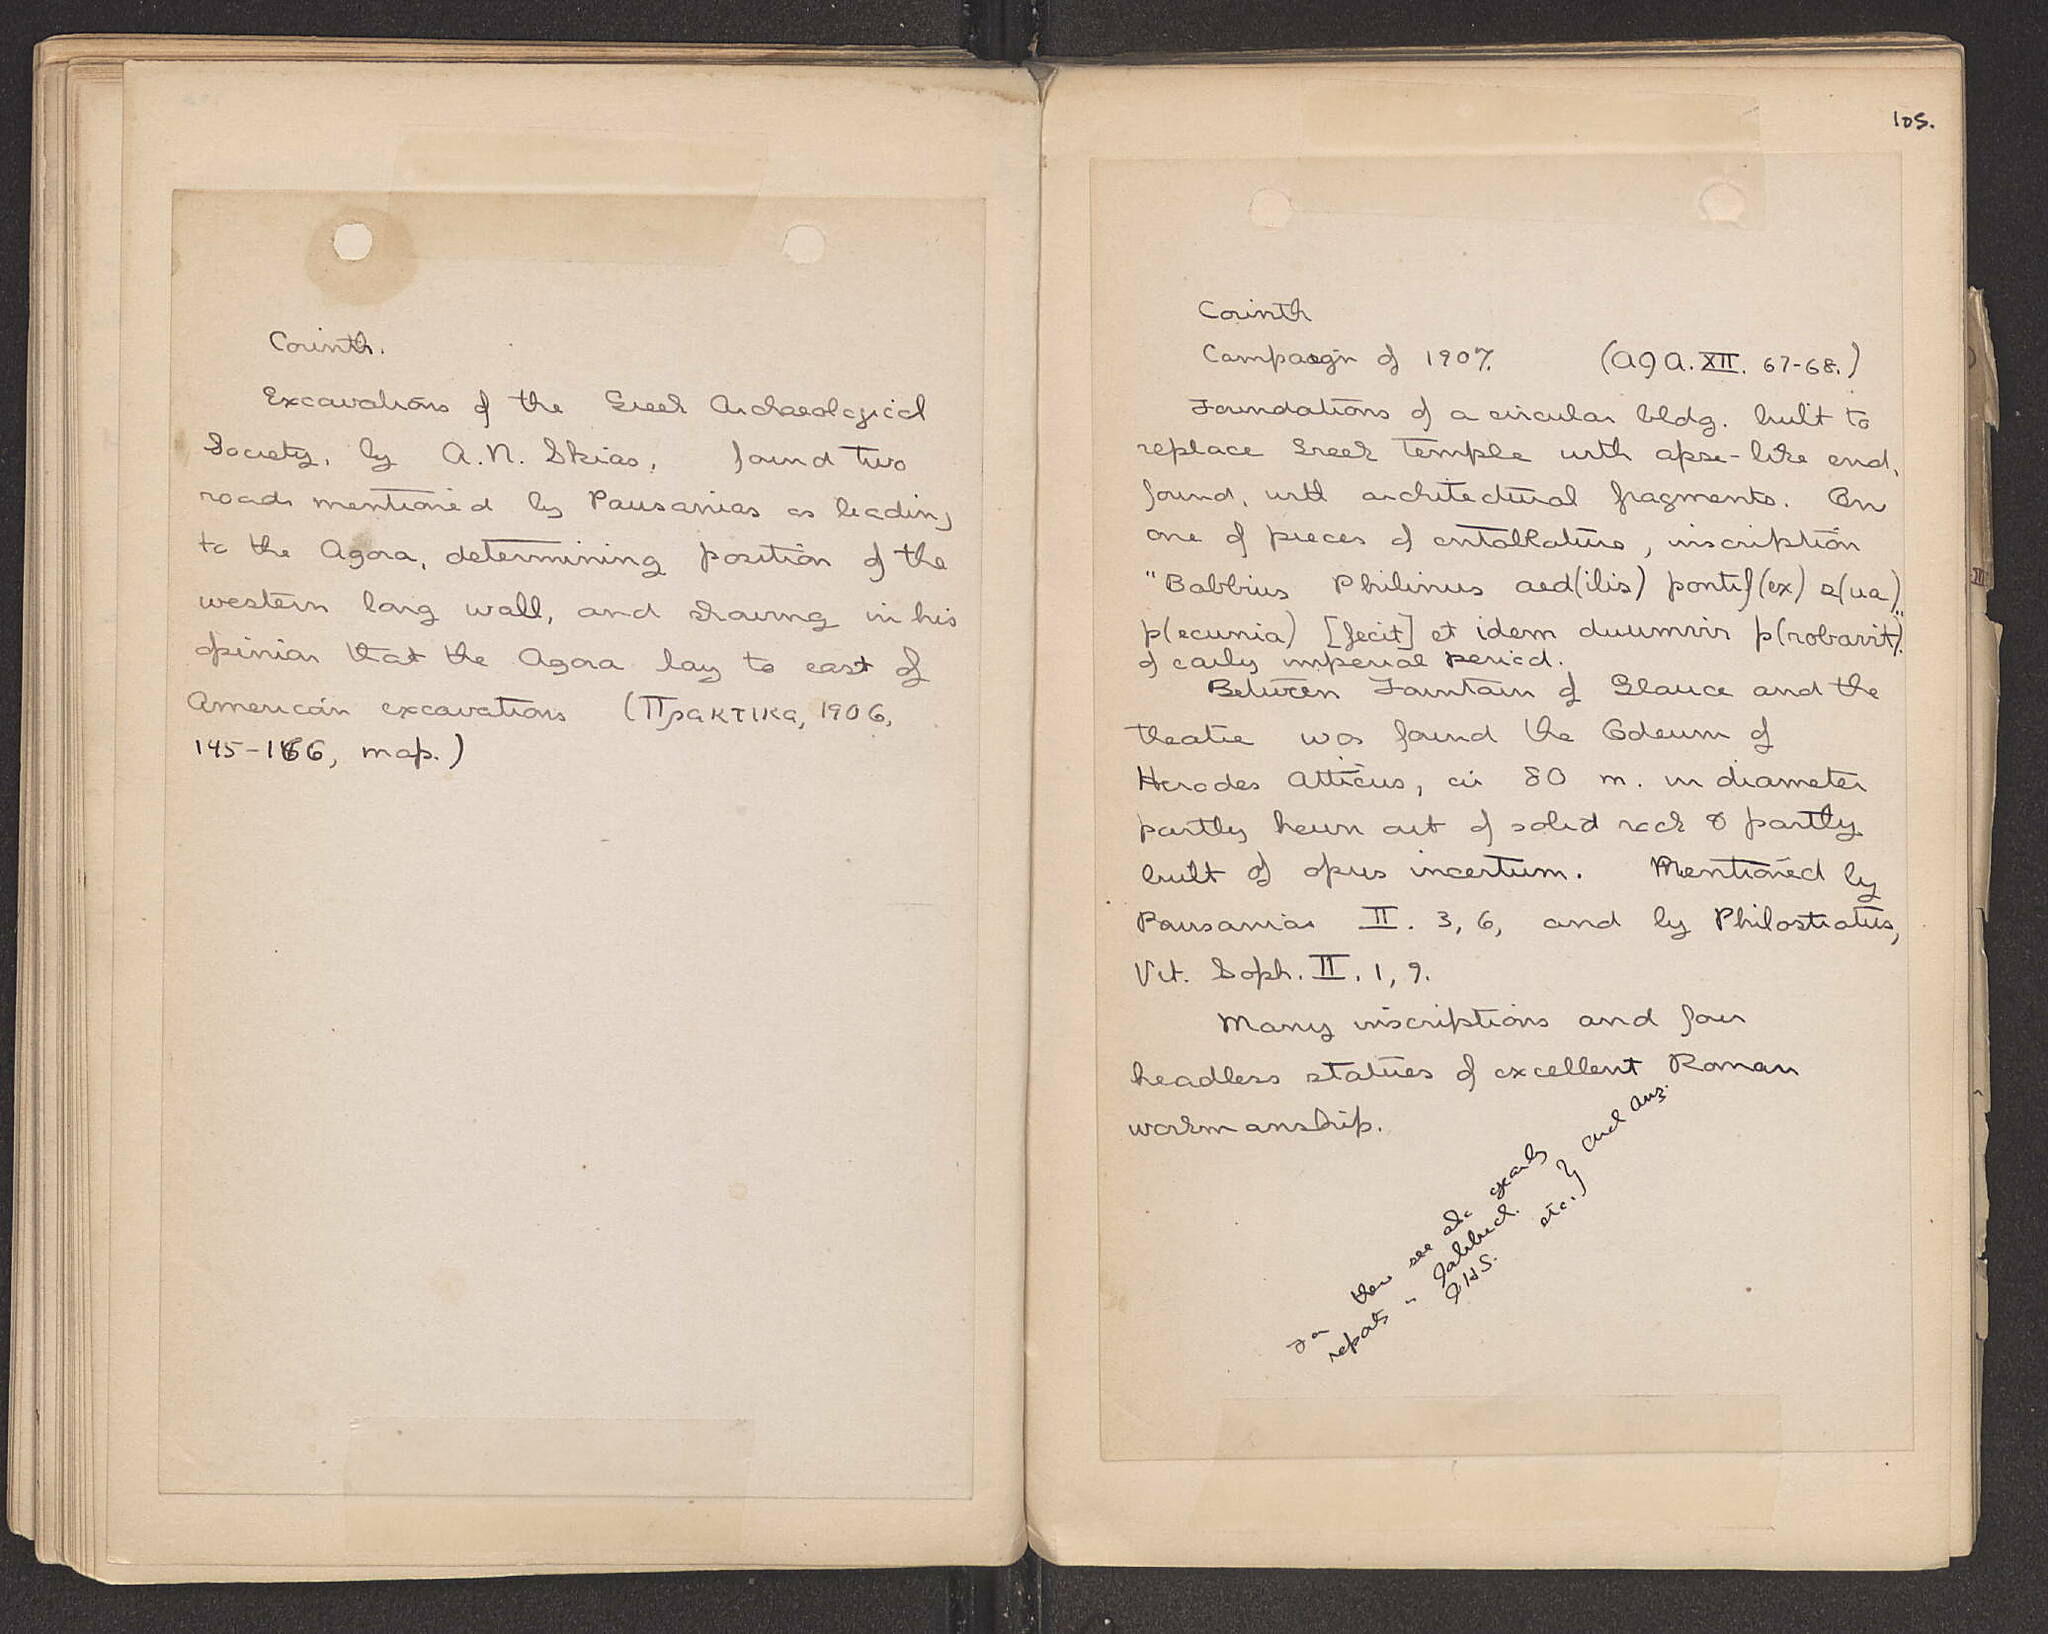 Corinth.
Excavations of the Greek Archaeological
Society, by A.N. Skias, found two
roads mentioned by Pausanias as leading
to the Agora, determining position of the
western long wall, and showing in his
opinion that the Agora lay to east of
American excavations (Πρακτικα, 1906,
145-166, map.)
105.
Corinth
Campaign of 1907. (AJA. XII. 67-68.)
Foundations of a circular bldg. built to
replace Greek temple with apse-like end,
found, with architectural fragments. On
one of pieces of entablature, inscription
"Babbius Philinus aed(ilis) pontif(ex) s(ua)
p(ecunia) [fecit] et idem duumvir p(robavit)."
of early imperial period.
Between Fountain of Glauce and the
theatre was found the Odeum of
Herodes Atticus, cir 80 m. in diameter
partly hewn out of solid rock & partly
built of opus incertum. Mentioned by
Pausanias II. 3, 6, and by Philostratus,
Vit. Soph. II. 1, 9.
Many inscriptions and four
headless statues of excellent Roman
workmanship.
For these see also yearly
reports in Jahrbuch. } Arch Anz.
J.H.S. etc.